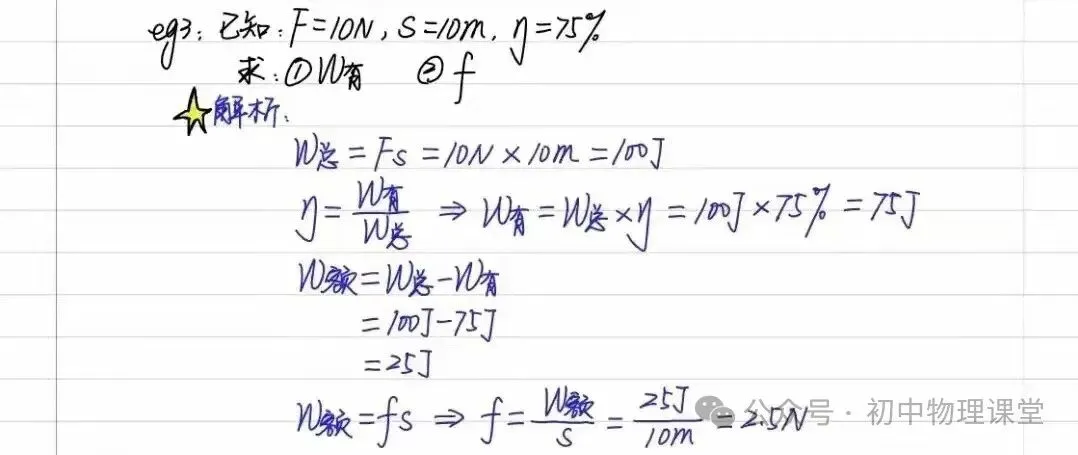 eg3: 已知: F=10N, S=10m, η=75%
求: ①W有 ② f
解析:
W总 = Fs = 10N × 10m = 100J
η = W有/W总 ⇒ W有 = W总 × η = 100J × 75% = 75J
W额 = W总 - W有
= 100J - 75J
= 25J
W额 = fs ⇒ f = W额/S = 25J/10m = 2.5N
公众号 · 初中物理课堂